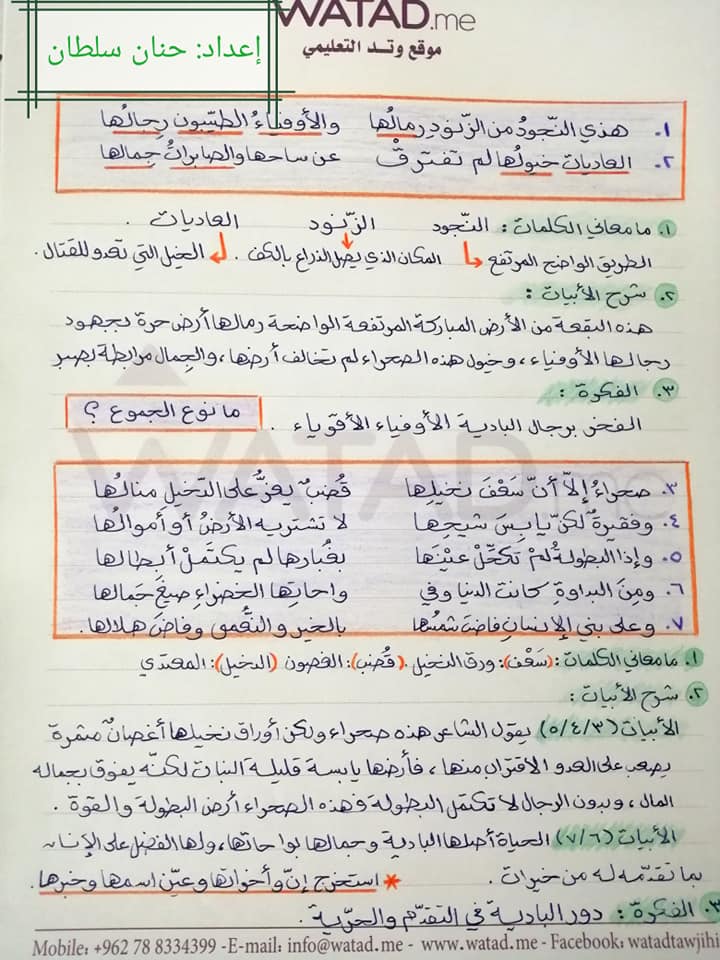 WATAD.me
موقع وتد التعليمي
إعداد: حنان سلطان
١. هذي النّجودُ من الزّنود رمالُها والأوفياءُ الطيّبون رجالُها
٢. العاديات خيولُها لم تفترقْ عن ساحها والصابراتُ جِمالها
١. ما معاني الكلمات: النّجود الزّنود العاديات.
الطريق الواضح المرتفع المكان الذي يصل الذراع بالكف. الخيل التي تعدو للقتال.
٢. شرح الأبيات:
هذه البقعة من الأرض المباركة المرتفعة الواضحة رمالها أرض حرة بجهود
رجالها الأوفياء، وخيول هذه الصحراء لم تخالف أرضها، والجمال مرابطة بصبر
٣. الفكرة:
الفخر برجال البادية الأوفياء الأقوياء.
ما نوع الجموع؟
٣. صحراءُ إلّا أنّ سَعْفَ نخيلِها قُضبٌ يعزُّ على الدّخيل منالُها
٤. وفقيرةٌ لكنّ يابسَ شيحِها لا تشتريه الأرضُ أو أموالُها
٥. وإذا البطولةُ لمْ تكحّلْ عينَها بغُبارها لم يكتملْ أبطالُها
٦. ومِنَ البداوةِ كانت الدنيا وفي واحاتِها الخضراءِ صيغَ جَمالها
٧. وعلى بني الإنسانِ فاضت شمسُها بالخيرِ والنُّعمى وفاضَ هلالها.
١. ما معاني الكلمات: (سَعْف): ورق النخيل. (قُضب): الغصون (الدخيل): المعتدي
٢. شرح الأبيات:
الأبيات (٥/٤/٣) يقول الشاعر هذه صحراء ولكن أوراق نخيلها أغصانٌ مثمرة
يصعب على العدو الاقتراب منها، فأرضها يابسة قليلة النبات لكنّه يفوق بجماله
المال، وبدون الرجال لا تكتمل البطولة فهذه الصحراء أرض البطولة والقوة.
الأبيات (٧/٦) الحياة أصلها البادية وجمالها بواحاتها، ولها الفضل على الإنسان
بما تقدّمه له من خيرات. * استخرج إنّ وأخواتها وعيّن اسمها وخبرها.
٣. الفكرة: دور البادية في التقدّم والحرّية.
WATAD.me
Mobile: +962 78 8334399 -E-mail: info@watad.me - www.watad.me - Facebook: watadtawjihi